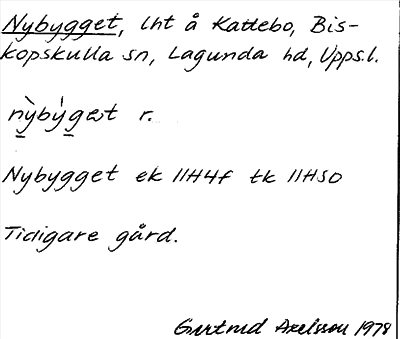 Nybygget, lht å Kattebo, Bis-
kopskulla sn, Lagunda hd, Upps.l.
nỳbýgət r.
Nybygget ek 11H4f tk 11HSO
Tidigare gård.
Gertrud Axelsson 1978